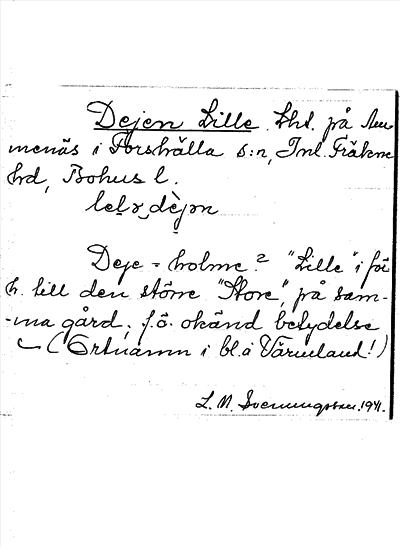 Dejen Lille. Lht. på Am-
menäs i Forshälla s:n, Inl. Fräkne
hrd, Bohus l.
Deje = holme? "Lille" i för-
h. till den större "Store", på sam-
-ma gård, f.ö. okänd betydelse
(Ortnamn i bl.a Värmland!)
L. M. Svenungsson. 1941.